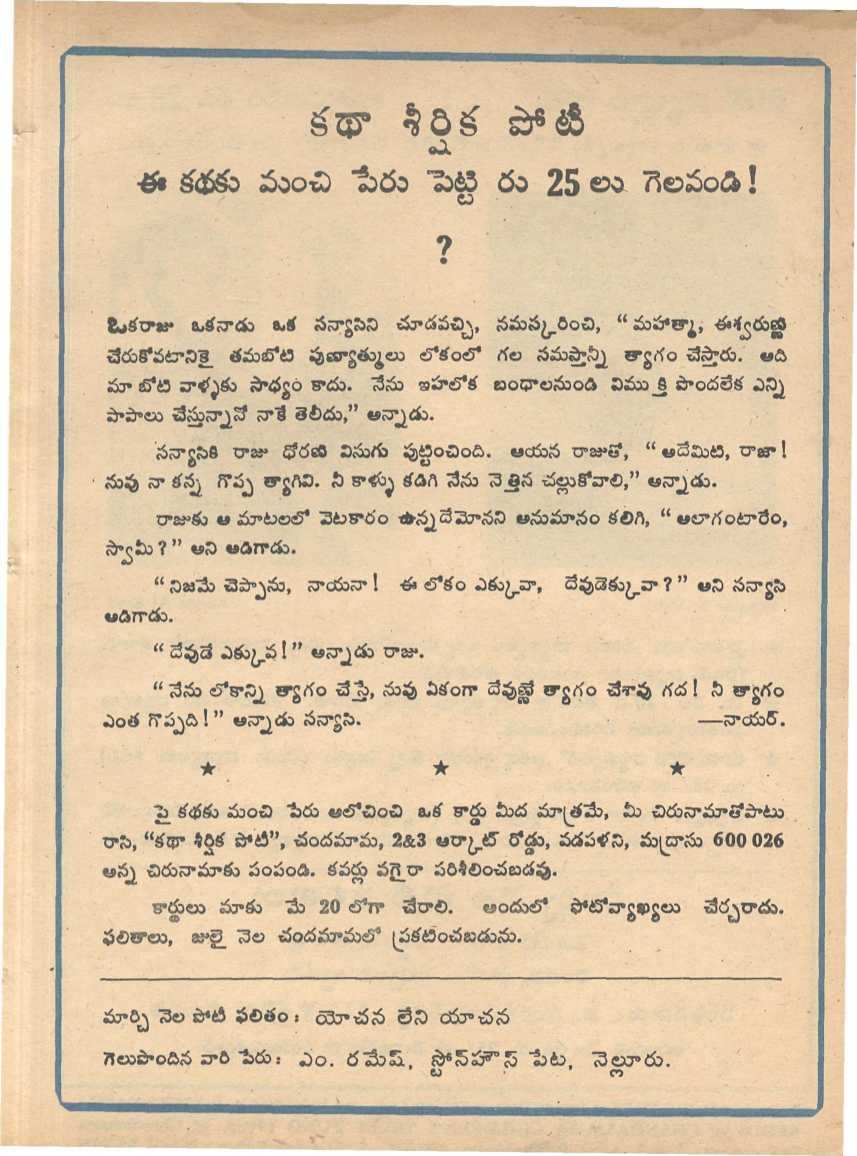 కథా శీర్షిక పోటీ
ఈ కథకు మంచి పేరు పెట్టి రు 25 లు గెలవండి!
?
ఒకరాజు ఒకనాడు ఒక సన్యాసిని చూడవచ్చి, నమస్కరించి, “మహాత్మా, ఈశ్వరుణ్ణి
చేరుకోవటానికై తమబోటి పుణ్యాత్ములు లోకంలో గల సమస్తాన్నీ త్యాగం చేస్తారు. అది
మా బోటి వాళ్ళకు సాధ్యం కాదు. నేను ఇహలోక బంధాలనుండి విముక్తి పొందలేక ఎన్ని
పాపాలు చేస్తున్నానో నాకే తెలీదు,” అన్నాడు.
సన్యాసికి రాజు ధోరణి విసుగు పుట్టించింది. ఆయన రాజుతో, “అదేమిటి, రాజా!
నువు నా కన్న గొప్ప త్యాగివి. నీ కాళ్ళు కడిగి నేను నెత్తిన చల్లుకోవాలి,” అన్నాడు.
రాజుకు ఆ మాటలలో వెటకారం ఉన్నదేమోనని అనుమానం కలిగి, “అలాగంటారేం,
స్వామీ?” అని అడిగాడు.
“నిజమే చెప్పాను, నాయనా! ఈ లోకం ఎక్కువా, దేవుడెక్కువా?” అని సన్యాసి
అడిగాడు.
“దేవుడే ఎక్కువ!” అన్నాడు రాజు.
“నేను లోకాన్ని త్యాగం చేస్తే, నువు ఏకంగా దేవుణ్ణే త్యాగం చేశావు గద! నీ త్యాగం
ఎంత గొప్పది!” అన్నాడు సన్యాసి. —నాయర్.
★ ★ ★
పై కథకు మంచి పేరు ఆలోచించి ఒక కార్డు మీద మాత్రమే, మీ చిరునామాతోపాటు
రాసి, “కథా శీర్షిక పోటీ”, చందమామ, 2&3 ఆర్కాట్ రోడ్డు, వడపళని, మద్రాసు 600 026
అన్న చిరునామాకు పంపండి. కవర్లు వగైరా పరిశీలించబడవు.
కార్డులు మాకు మే 20 లోగా చేరాలి. అందులో ఫోటోవ్యాఖ్యలు చేర్చరాదు.
ఫలితాలు, జులై నెల చందమామలో ప్రకటించబడును.
మార్చి నెల పోటీ ఫలితం: యోచన లేని యాచన
గెలుపొందిన వారి పేరు: ఎం. రమేష్, స్టోన్‌హౌస్ పేట, నెల్లూరు.